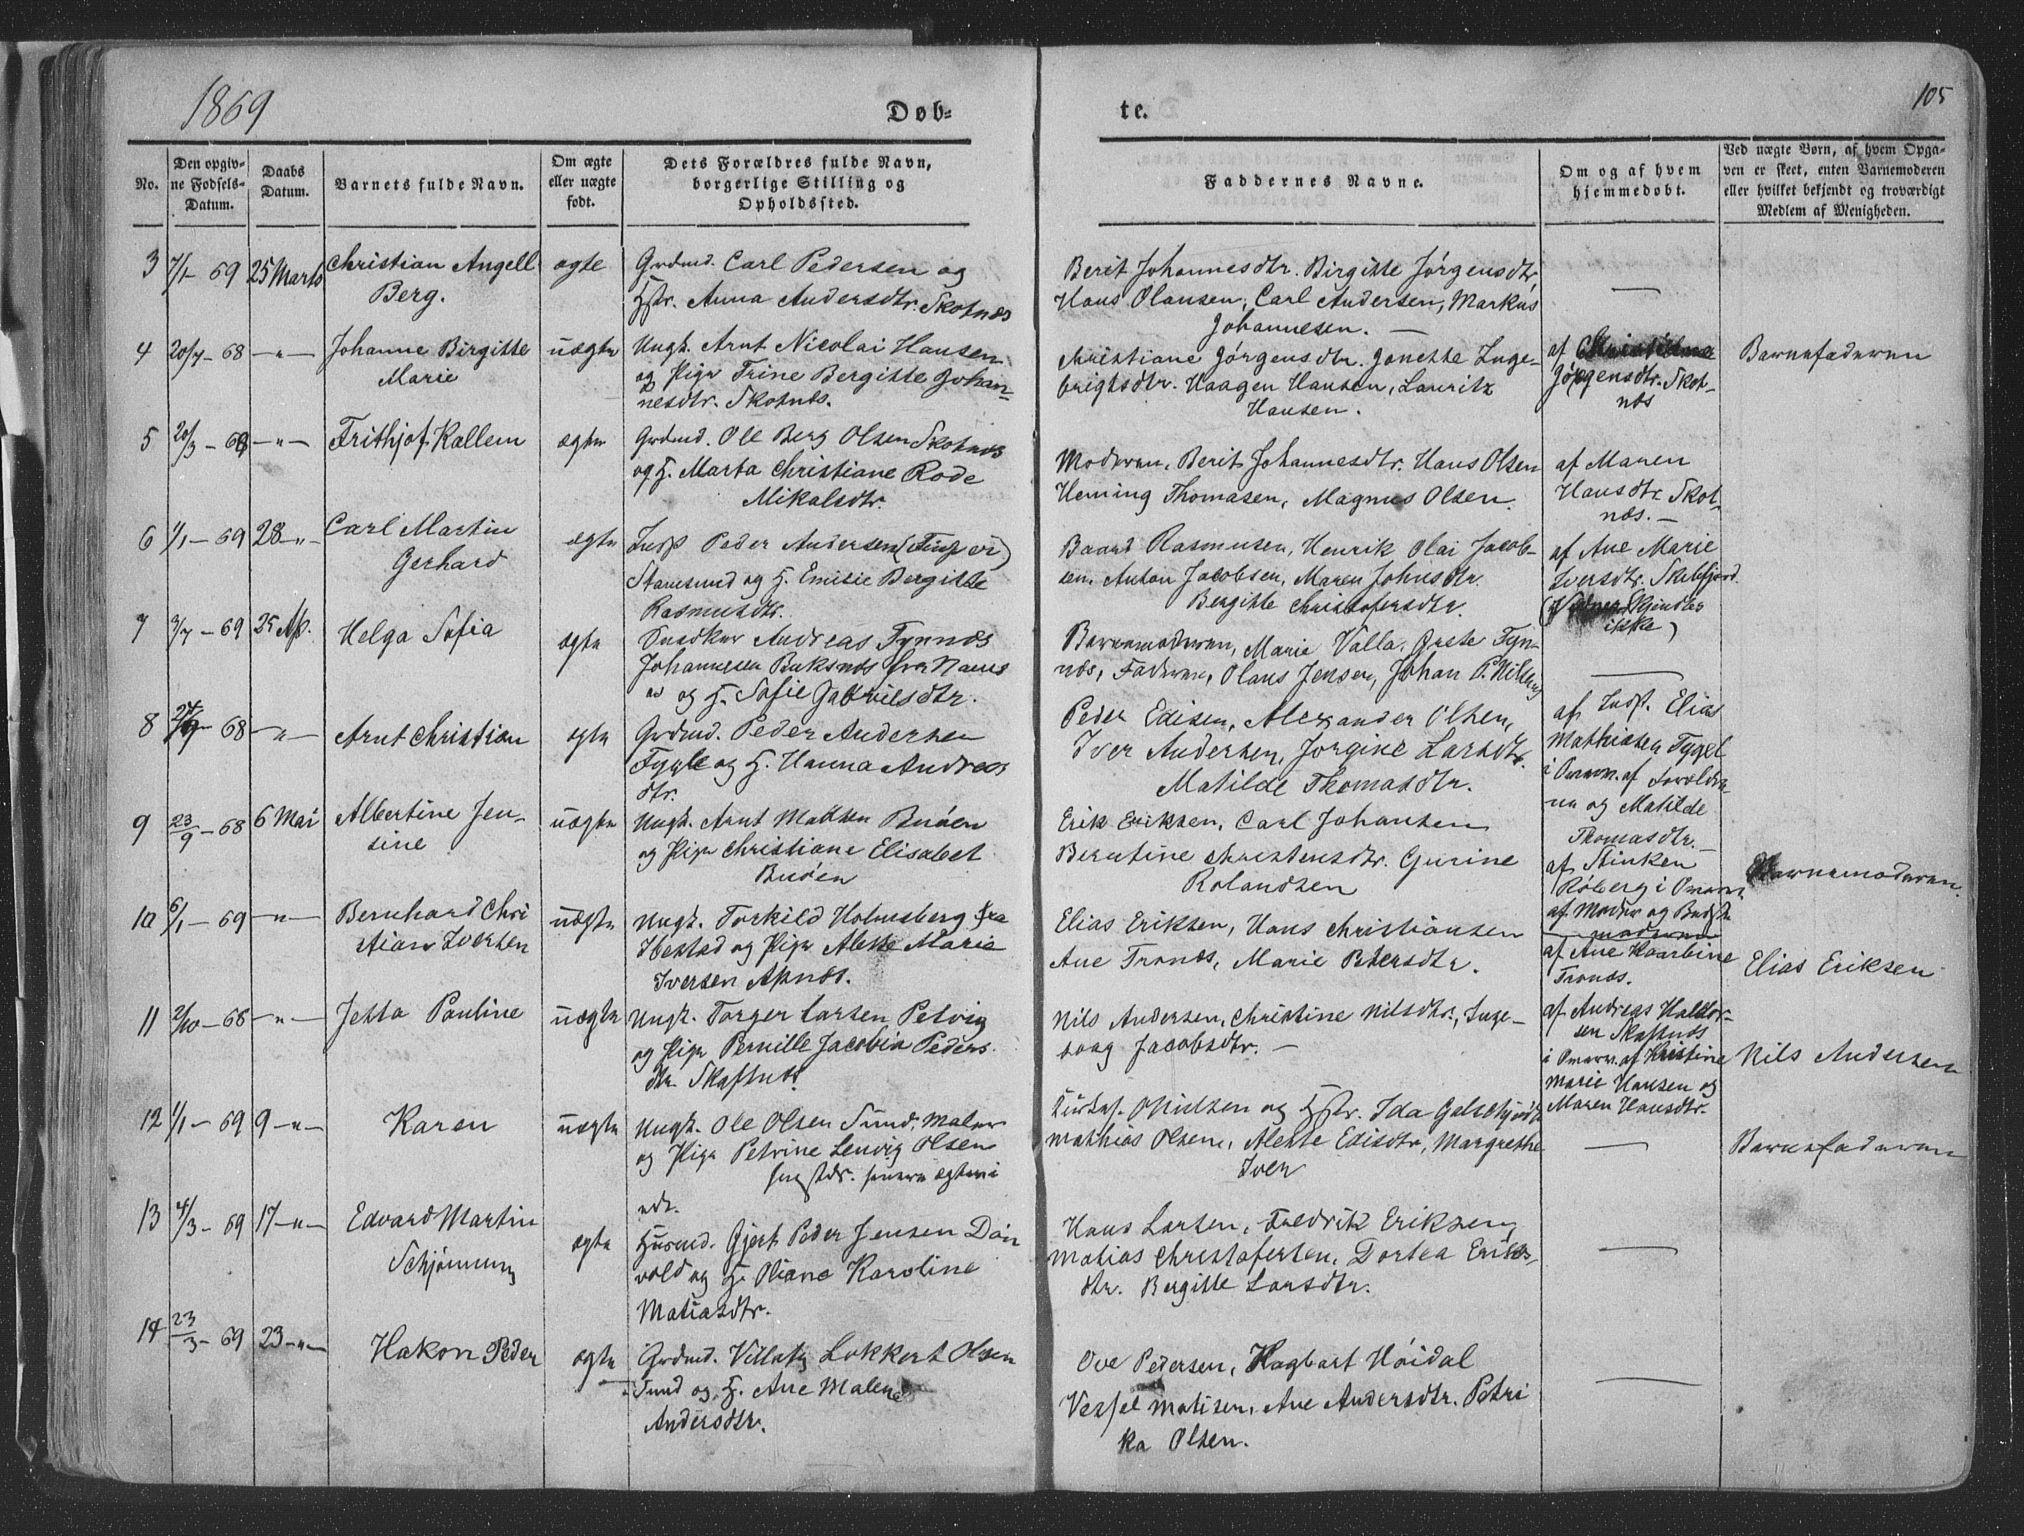 1869
Døb-
te.
105
No.
Den opgiv-
ne Fødsels-
Datum.
Daabs
Datum.
Barnets fulde Navn.
Om ægte
eller uægte
født.
Dets Forældres fulde Navn,
borgerlige Stilling og
Opholdssted.
Faddernes Navne.
Om og af hvem
hjemmedøbt.
Ved uægte Børn, af hvem Opga-
ven er skeet, enten Barnemoderen
eller hvilket bekjendt og troværdigt
Medlem af Menigheden.
3 7/1 - 69 25 Marts Christian Angell
Berg.
ægte
Grdmd. Carl Pedersen og
Hstr. Anna Andersdtr. Skotnæs
Berit Johannesdtr. Birgitte Jørgensdtr
Hans Olausen, Carl Andersen, Markus
Johannesen. —
—
4 20/7 - 68 —"— Johanne Birgitte
Marie
uægte
Ungk. Arnt Nicolai Hansen
og Pige Trine Bergitte Johan-
nesdtr. Skotnæs.
Christiane Jørgensdtr. Jonette Inge-
brigtsdtr. Haagen Hansen, Lauritz
Hansen.
af
Jørgensdtr. Skot-
næs
Barnefaderen
5 20/3 - 68 —"— Frithjof Kallem
ægte
Grdmd. Ole Berg Olsen Skotnæs
og H. Marta Christiane Rode
Mikalsdtr.
Moderen, Berit Johannesdtr. Hans Olsen
Heming Thomasen, Magnus Olsen.
af Maren
Hansdtr. Skot-
næs. —
6 1/1 - 69 28 -"- Carl Martin
Gerhard
ægte
Indst Peder Andersen
Stamsund og H. Emilie Bergitte
Rasmusdtr.
Baard Rasmusen, Henrik Olai Jacob-
sen, Anton Jacobsen, Maren Johnsdtr.
Bergitte Christofersdtr.
af Ane Marie
Iversdtr. Skelfjord
ikke)
7 69 25 Ap. Helga Sofia
ægte
Snedker Andreas Fynnæs
Johannesen Buksnæs fra Namsos
og H. Sofie Gabrielsdtr.
Barnemoderen, Marie Valla, Grete Fyn-
næs, Faderen, Olaus Jensen, Johan P.
—
8 68 —"— Arnt Christian
ægte
Grdmd. Peder Andersen
Fygle og H. Hanna Andreas
dtr.
Peder Edisen, Alexander Olsen,
Iver Andersen, Jørgine Larsdtr.
Matilde Thomasdtr.
af Indst. Elias
Mathiasen Fygel
i Overv. af Foreldre-
ne og Matilde
Thomasdtr. —
9 23/9 - 68 6 Mai Albertine Jen-
sine
uægte
Ungk. Arnt Madsen Buøen
og Pige Christiane Elisabet
Buøen
Erik Eriksen, Carl Johansen
Berntine Christensdtr. Gurine
Rolandsen
af Stinken
Røberg i Overv.
af Moder og Bedste
moderen
Barnemoderen.
10 6/1 - 69 —"— Bernhard Chri
stian Iversen
uægte
Ungk. Torkild Holmsberg fra
Hestad og Pige Alette Marie
Iversen Apnæs.
Elias Eriksen, Hans Christiansen
Ane Tronds, Marie Petersdtr.
af Ane Kaarbine
Tronds.
Elias Eriksen
11 2/10 - 68 —"— Jetta Pauline
uægte
Ungk. Torger Larsen Petvig
og Pige Pernille Jacobia Peders
dtr Skaftnæs.
Nils Andersen, Christine Nilsdtr., Inge-
borg Jacobsdtr. —
af Andreas Haldor-
sen Skaftnæs
i Overv. af Kristine
Marie Hansen og
Maren Hansdtr.
Nils Andersen
12 1/1 - 69 9 -"- Karen
uægte
Ungk. Ole Olsen Sund, Maler
og Pige Petrine Lenvig Olsen
senere ægtevi
edt.
Nielsen og Hstr. Ida Galschjødt
Mathias Olsen, Alette Edisdtr, Margrethe
Iver
—
Barnefaderen
13 4/3 - 69 17 -"- Edvard Martin
Schjønning
ægte
Husmd. Gjert Peder Jensen Døn
vold og H. Oliane Karoline
Matiasdtr.
Hans Larsen, Fredrik Eriksen,
Matias Christofersen, Dortea Eriks-
dtr. Bergitte Larsdtr.
—
14 23/3 - 69 23 -"- Hakon Peder
ægte
Grdmd. Villatz Lokkert Olsen
Sund og H. Ane Malene
Andersdtr.
Ove Pedersen, Hagbart Høidal
Vessel Matisen, Ane Andersdtr. Petri
ka Olsen.
—